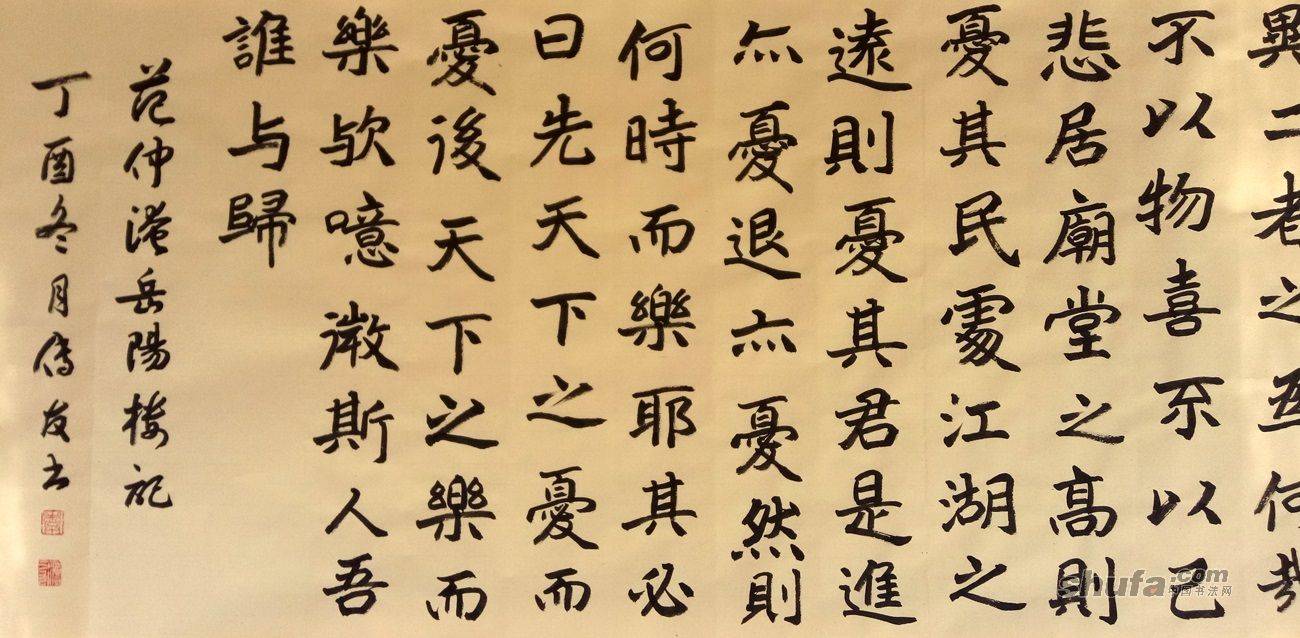 異二者之為何哉
不以物喜不以己
悲居廟堂之高則
憂其民處江湖之
遠則憂其君是進
亦憂退亦憂然則
何時而樂耶其必
曰先天下之憂而
憂後天下之樂而
樂欤噫微斯人吾
誰与歸
范仲淹岳陽樓記
丁酉冬月傅友书
shufa.com
中国书法网